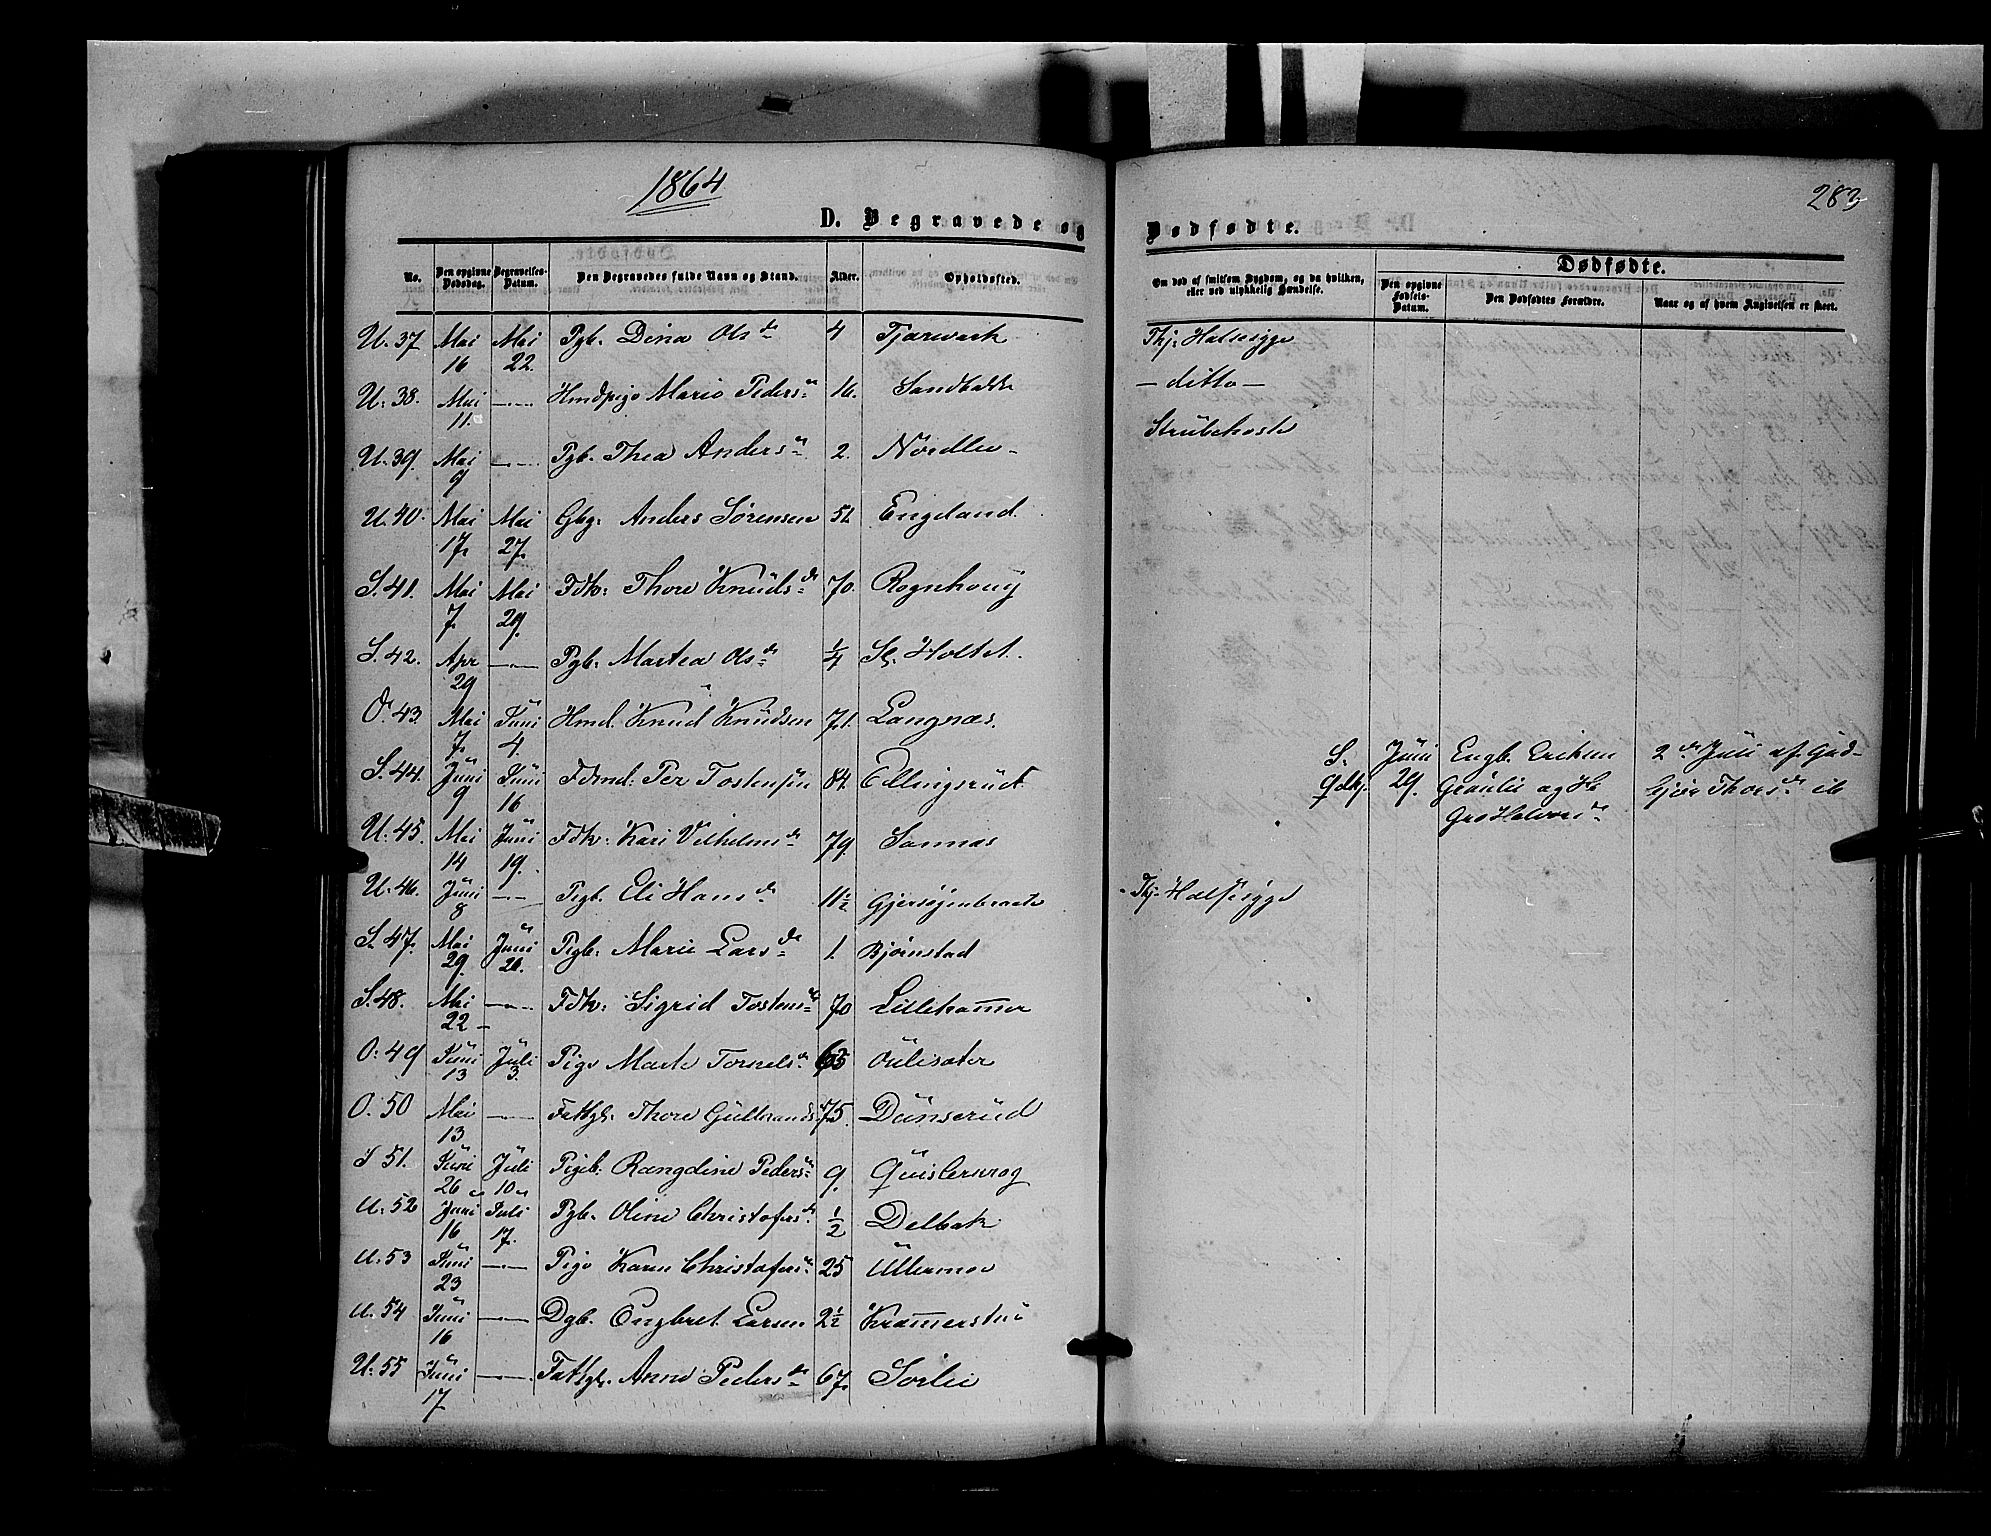 1864
283
D. Begravede og
Dødfødte.
No. Den opgivne Dødsdag. Begravelses-Datum. Den Begravedes fulde Navn og Stand. Alder. Opholdssted.
Om død af smitsom Sygdom, og da hvilken, eller ved ulykkelig Hændelse.
Dødfødte.
Den opgivne Fødsels-Datum. Den Dødfødtes Forældre. Naar og af hvem Angivelsen er skeet.
U. 37 Mai 16 Mai 22. Pgb. Dina Ols dr 4 Tjærverk Thj. Halsesyge
U. 38. Mai 11. — Hmdpige Marie Peders dr 16. Sandbakke — ditto —
U. 39. Mai 9 — Pgb. Thea Anders dr 2. Nordlie Strubehoste
U. 40. Mai 17. Mai 27. Gbg: Anders Sørensen 51 Engeland.
S. 41. Mai 7. Mai 29. Fdk: Thore Knuds dr 70. Rognhoug
S. 42. Apr 29 — Pgb. Martea Ols dr 1/4 Sl. Holtet.
O. 43. Mai 7. Juni 4. Hmd. Knud Knudsen 71. Langnæs.
S. 44. Juni 9 Juni 16 Fdmd: Per Tostensen 84. Ellingsrud
S. Juni 29. Engb. Eriksen
Gro Halvors dr
2 den Juli af Gud-
bjør Thors dr ib
U. 45. Mai 14 Juni 19. Fdk: Kari Vilhelms dr 79. Sannæs
U. 46. Juni 8 — Pigb. Eli Hans dr 11 1/2 Gjersøjenbraate Thj. Halsesyge
S. 47. Mai 29. Juni 26. Pigb: Marie Lars dr 1. Bjørnstad
S. 48. Mai 22 — Fdk: Sigrid Tostens dr 70 Lillehamer
O: 49 Juni 13 Juli 3. Pige Marte Tornels dr 65 Oulisæter
O. 50 Mai 13 — Fattgl. Thore Gulbrands dr 75. Dunserud
S 51. Juni 26 Juli 10 Pigeb: Rangdine Peders dr 9. Quislerkrog
U. 52 Juni 16 Juli 17. Pgb. Oline Christofers dr 1/2 Delbak
U. 53 Juni 23 — Pige Karen Christofers dr 25 Ullermoe
U. 54 Juni 16 — Dgb. Engbret Larsen 2 1/2 Kramerstue
U. 55 Juni 17 — Fattgl. Anne Peders dr 67. Sorlie